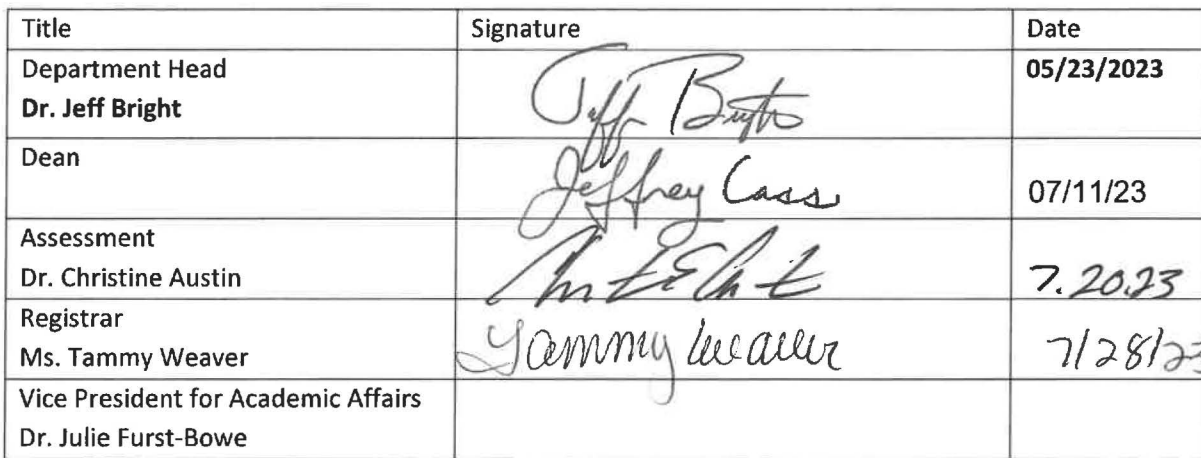 Title Signature Date
Department Head 05/23/2023
Dr. Jeff Bright
Dean Jeffrey Cass 07/11/23
Assessment
Dr. Christine Austin 7.20.23
Registrar
Ms. Tammy Weaver Tammy Weaver 7/28/23
Vice President for Academic Affairs
Dr. Julie Furst-Bowe